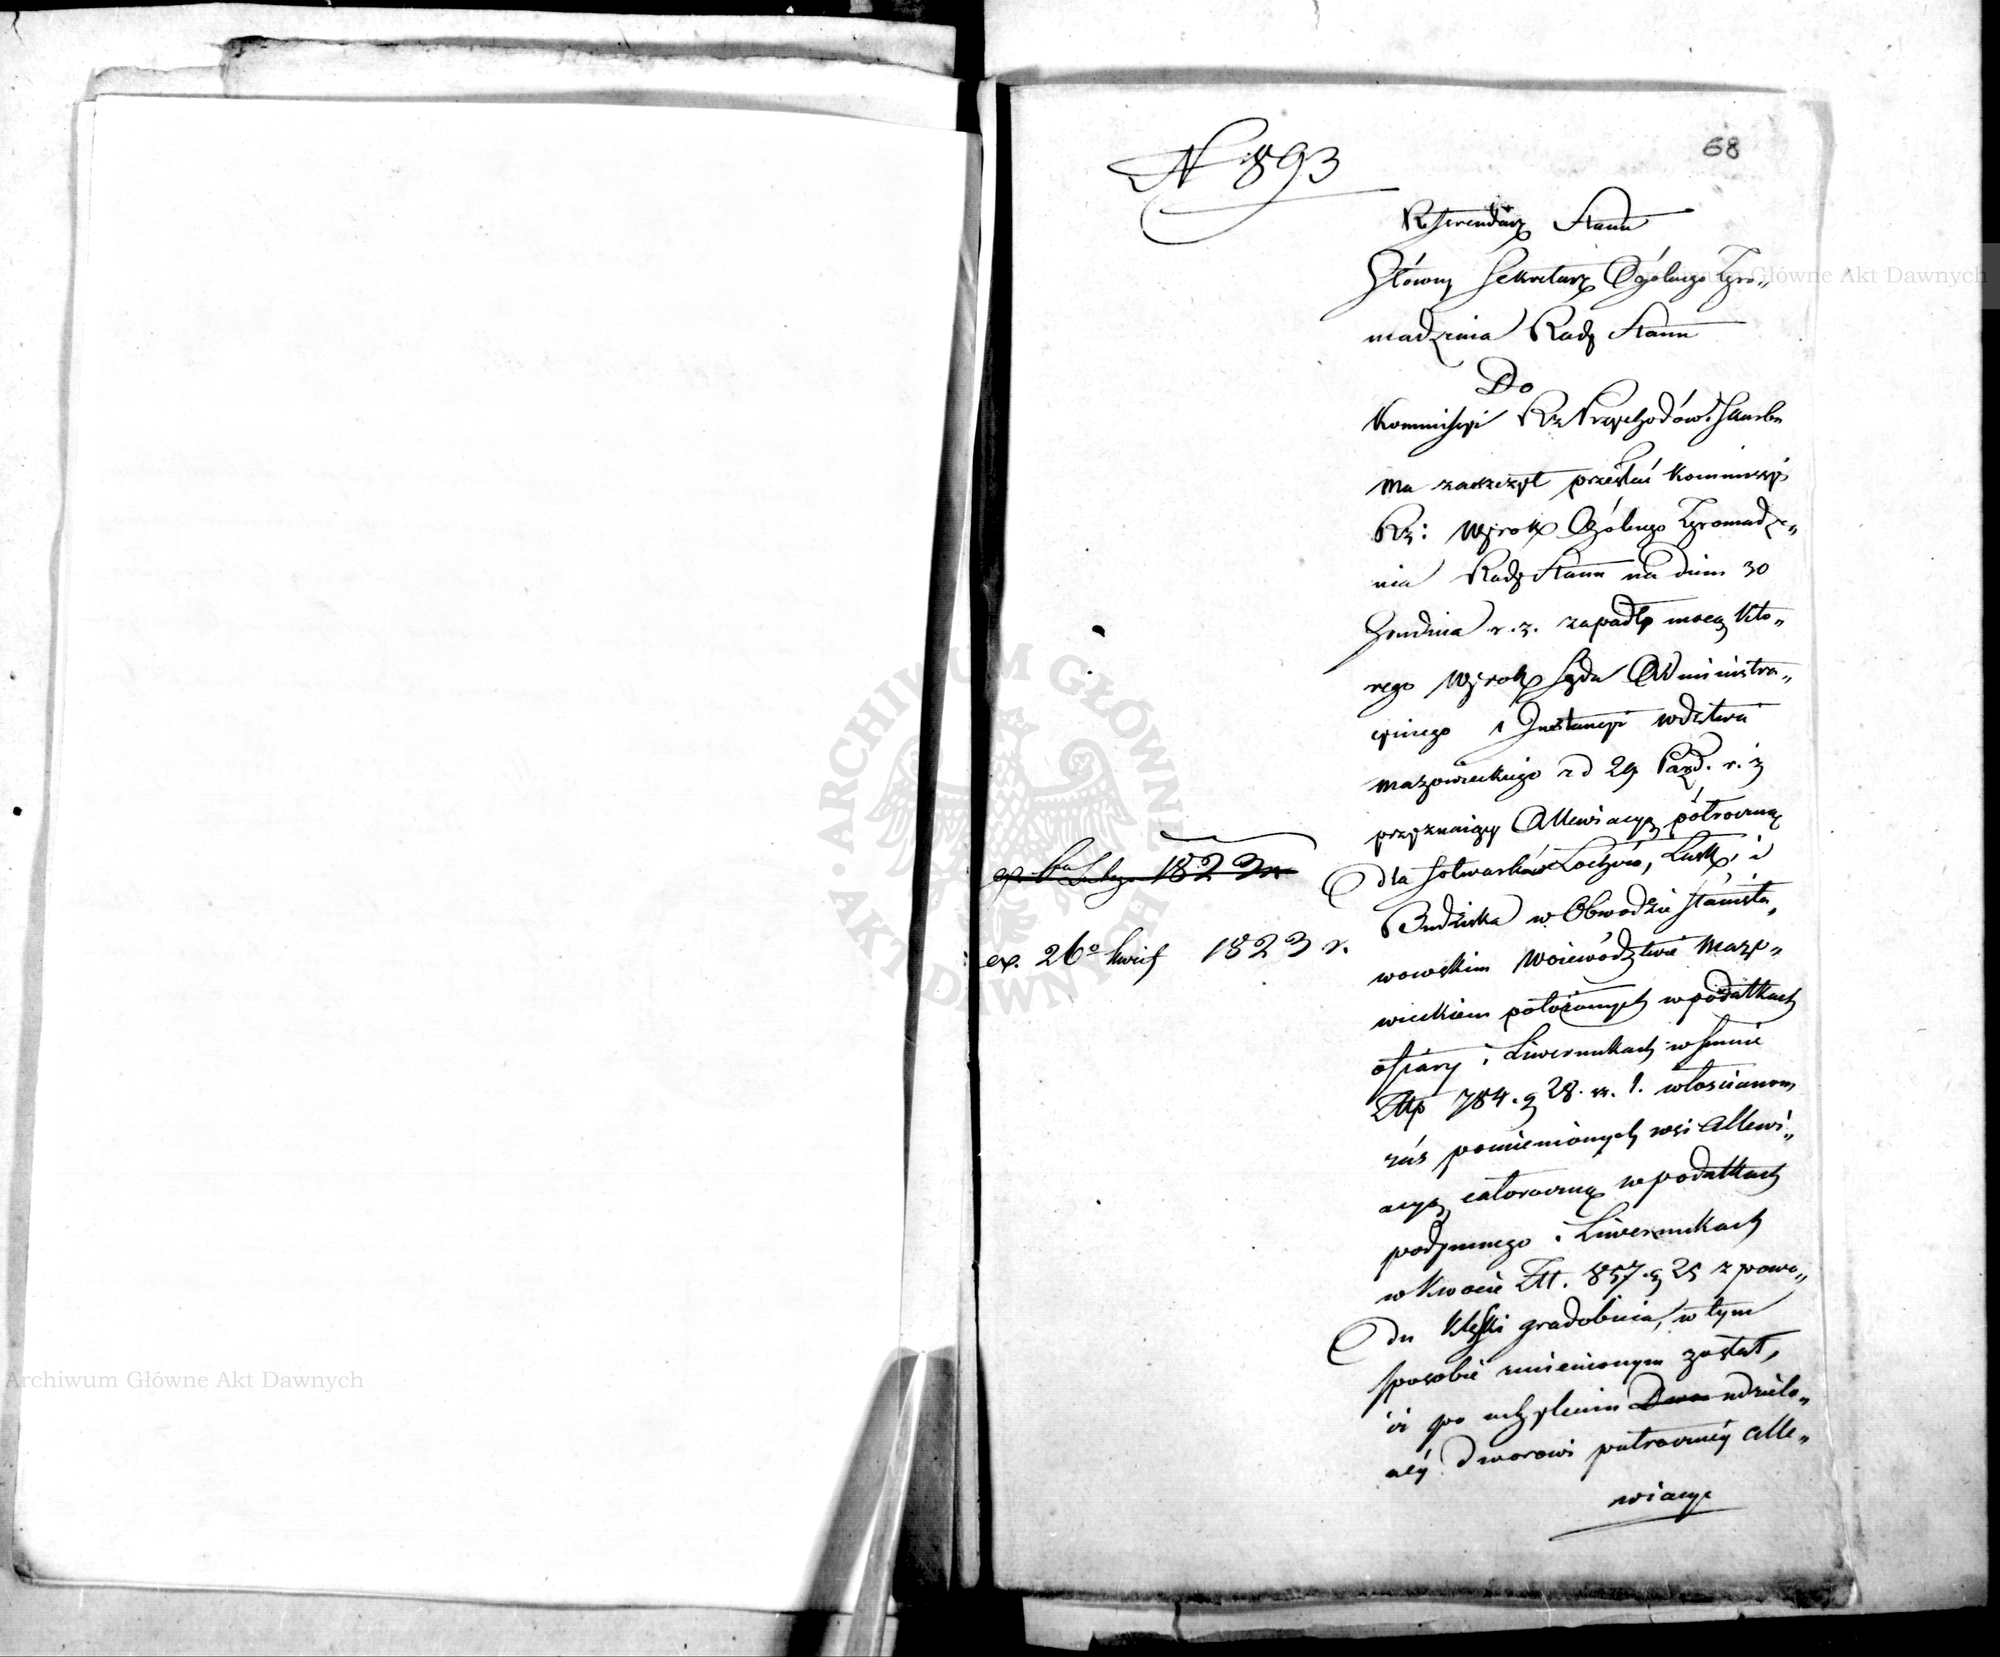 68
N 893
Referendarz Stanu
Główny Sekretarz Ogólnego Zgro„
madzenia Rady Stanu
Do
Kommissyi Rz Przychodów i Skarbu
Ma zaszczyt przesłać Kommissyi
Rz: Wyrok Ogólnego Zgromadze„
nia Rady Stanu na dniu 30
Grudnia r. z. zapadły mocą któ„
rego Wyrok Sądu Administra„
cyinego 1 Instancyi wdztwa
Mazowieckiego z d 29 Pazd. r. z
przyznaiący Allewiacyą półroczną
dla folwarków Łochów, i
Budziska w Obwodzie Stanisła„
wowskim Woiewództwie Mazo„
wieckiem położonych w podatkach
ofiary i Liwerunkach w summie
Złłp 784. g 28. 1. włościanom
zaś pomienionych wsi allewi„
acyą całoroczną w podatkach
podymnego i Liwerunkach
w kwocie Złł. 857. g 25 z powo„
du klęski gradobicia, w tym
sposobie zmienionym został,
iż po uchyleniu udzielo„
néy dworowi półrocznéy alle„
wiacyi
1823 r
ex. 26º Kwiet 1823 r.
Archiwum Główne Akt Dawnych
Archiwum Główne Akt Dawnych
ARCHIWUM GŁÓWNE AKT DAWNYCH